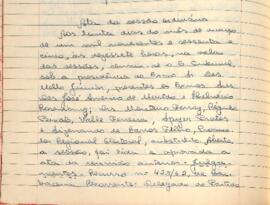 Ata da sessão ordinária
Aos trinta dias do mês de março
de um mil novecentos e sessenta e
cinco, às dezessete horas, na sala
das sessões, reuniu-se o E. Tribunal,
sob a presidência do Exmo. Sr. Des.
Mello Júnior, presentes os Exmos. Srs.
Des. José Américo de Macêdo e
Drs.
Valle Ferreira,
e de Barros Filho, Procura-
dor Regional Eleitoral, substituto. Aberta
a sessão, foi lida e aprovada a
ata da reunião anterior. Julga-
mentos. Recurso nº 423/62, de Bar-
bacena. Recorrente: Delegado do Partido